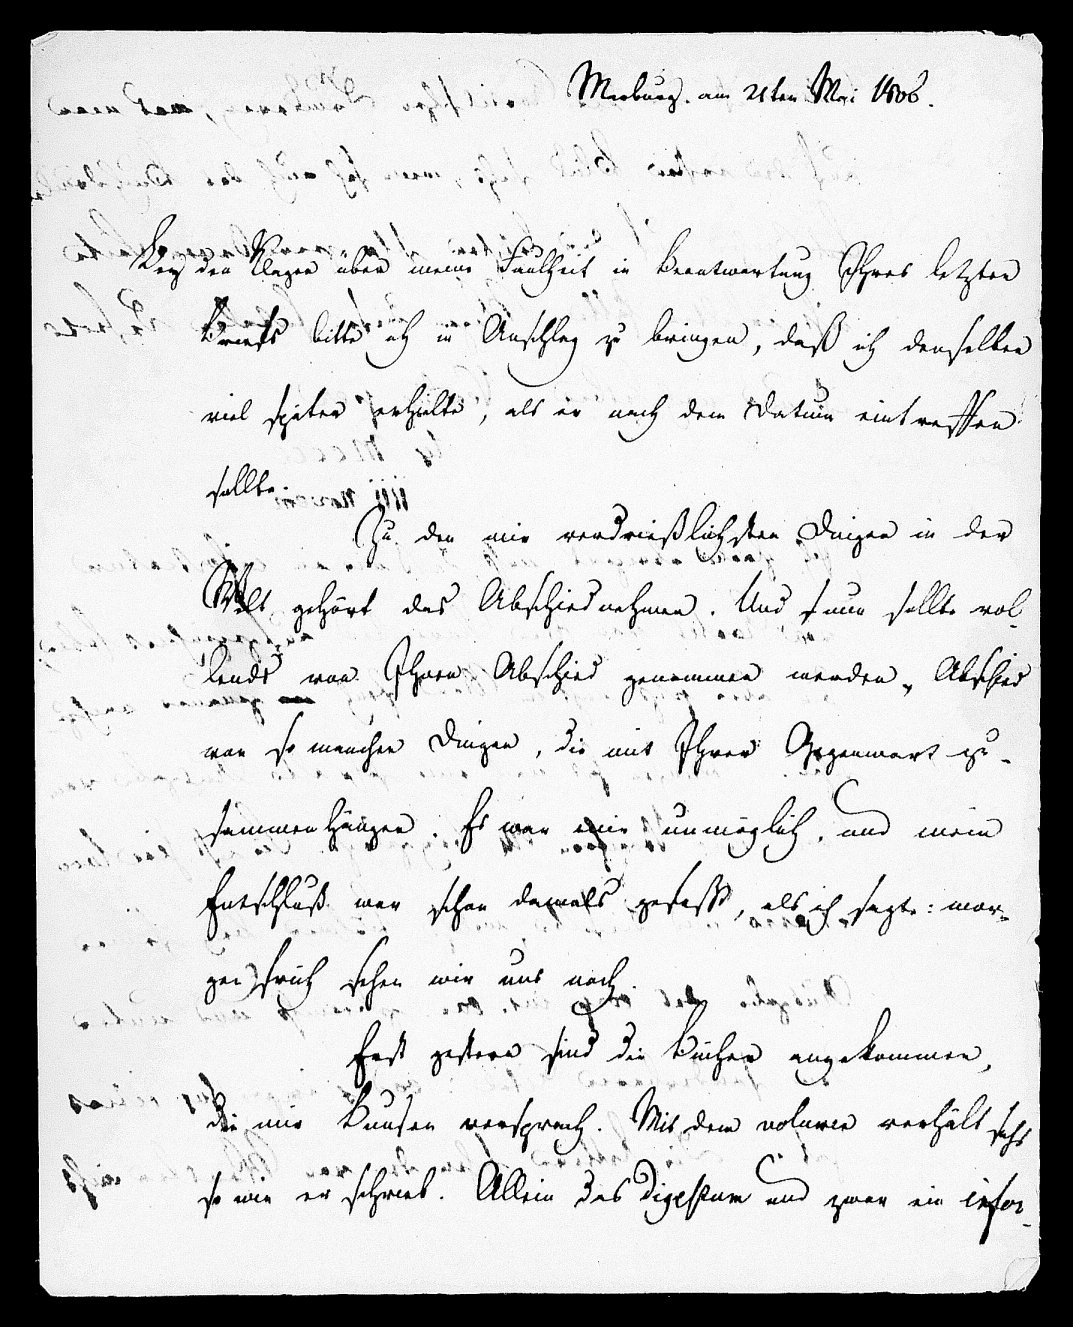 Marburg. am 21ten Mai 1806.
Bey den Klagen über meine Faulheit in Beantwortung Ihres letzten
Briefs bitte ich in Anschlag zu bringen, daß ich denselben
viel später erhielte, als er nach dem Datum eintreffen
sollte.
Zu den mir verdrießlichsten Dingen in der
Welt gehört das Abschiednehmen. Und nun sollte vol-
lends von Ihnen Abschied genommen werden, Abschied
von so manchen Dingen, die mit Ihrer Gegenwart zu-
sammenhängen. Es war mir unmöglich, und mein
Entschluß war schon damals gefaßt, als ich sagte: mor-
gen früh sehen wir uns noch.
Erst gestern sind die Bücher angekommen,
die mir versprach. Mit dem volumen verhält sichs
so wie er schrieb. Allein das Digestum und zwar ein infor-